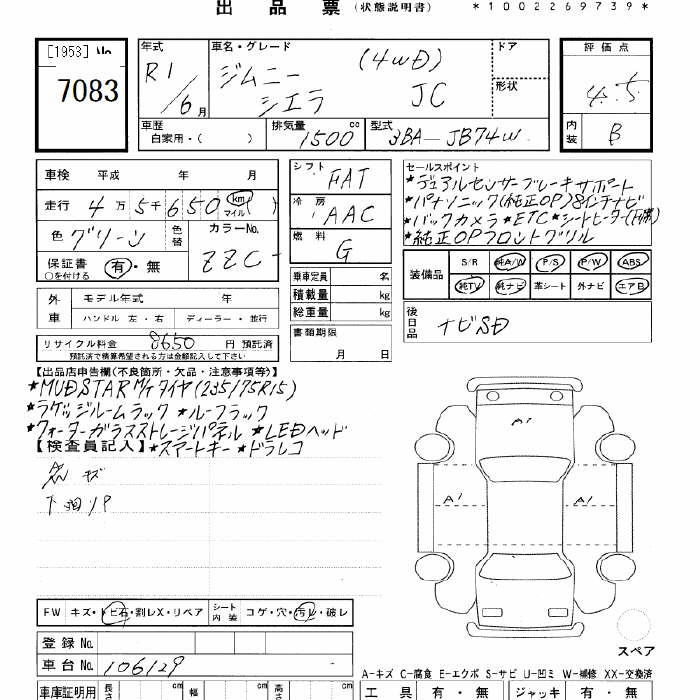 出品票 (状態説明書) *1002269739*
[1953] No.
7083
年式 車名・グレード ドア 評価点
R1/6月 ジムニー (4WD) 形状 4.5
シエラ JC
車歴 自家用・( ) 排気量 1500 cc 型式 3BA-JB74W 内装 B
車検 平成 年 月 シフト FAT セールスポイント
走行 4万5千650 km マイル ( ) 冷房 AAC
色 グリーン 色替 カラーNo. ZZC- 燃料 G
保証書 ○を付ける 有・無
*デュアルセンサーブレーキサポート
*パナソニック(純正OP)8インチナビ
*バックカメラ *ETC *シートヒーター(F席)
*純正OPフロントグリル
乗車定員 名
積載量 kg
総重量 kg
書類期限 月 日
装備品 S/R 純A/W P/S P/W ABS
純TV 純ナビ 革シート 外ナビ エアB
外車 モデル年式 年
ハンドル 左・右 ディーラー・並行
後日品 ナビSD
リサイクル料金 8650 円 預託済
預託済で精算希望されない方は金額記入して下さい
【出品店申告欄(不良箇所・欠品・注意事項等)】
*MUDSTAR M/Tタイヤ(235/75R15)
*ラゲッジルームラック *ルーフラック
*クォーターガラスストレージパネル *LEDヘッド
【検査員記入】 *スマートキー *ドラレコ
キズ
A1
A1 A1
FW キズ・トビ石・割レX・リペア シート内装 コゲ・穴・汚レ・破レ
登録No.
車台No. 106129
スペア
A-キズ C-腐食 E-エクボ S-サビ U-凹ミ W-補修 XX-交換済
車庫証明用 長さ cm 幅 cm 高さ cm 工具 有・無 ジャッキ 有・無